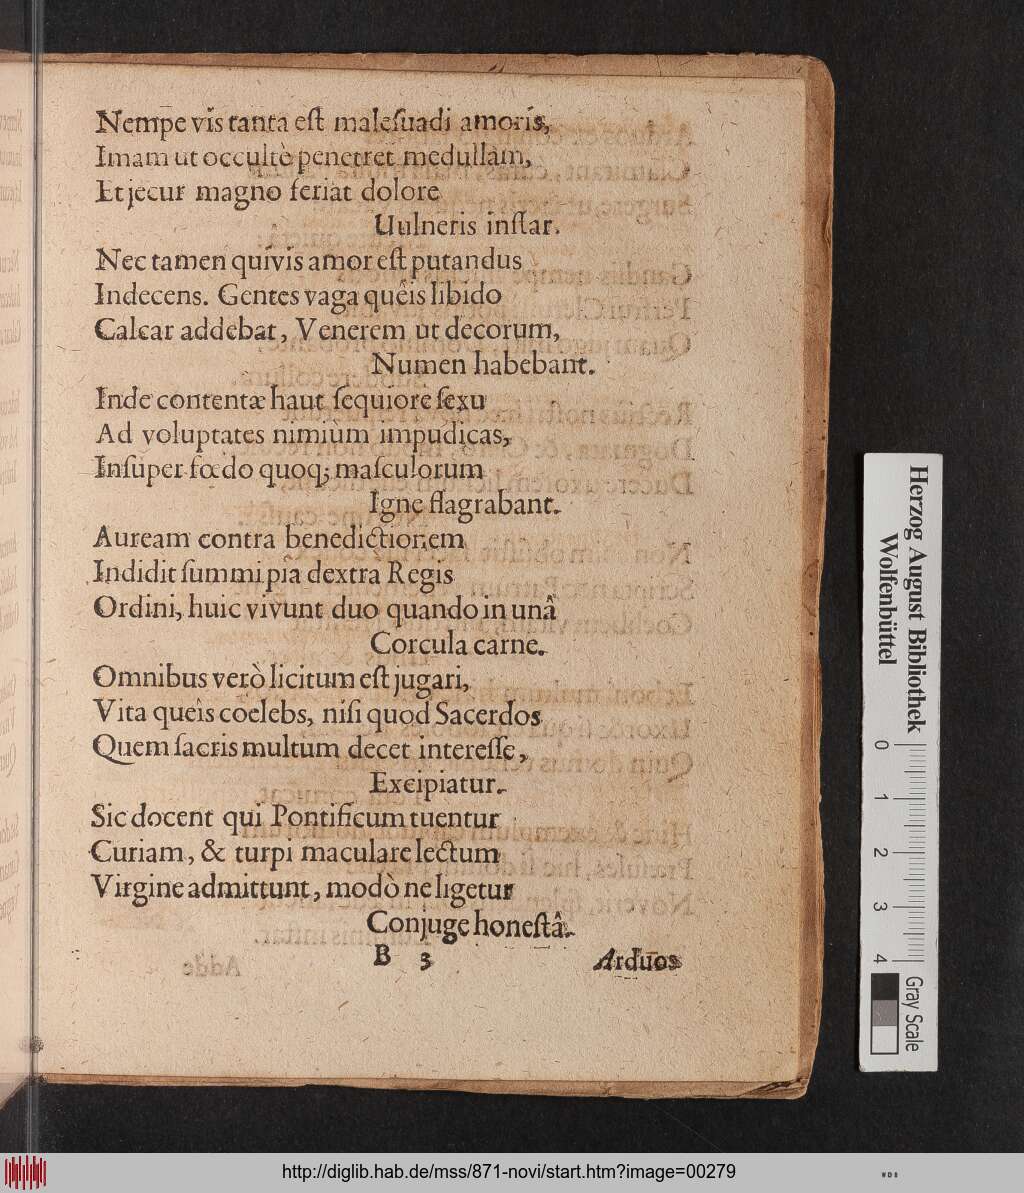 Nempe vis tanta eſt maleſuadi amoris,
Imam ut occultè penetret medullam,
Et jecur magno feriat dolore
Uulneris inſtar.
Nec tamen quívis amor eſt putandus
Indecens. Gentes vaga quêis libido
Calcar addebat, Venerem ut decorum,
Numen habebant.
Inde contentæ haut ſequiore ſexu
Ad voluptates nimiùm impudicas,
Inſuper fœdo quoq; maſculorum
Igne flagrabant.
Auream contra benedictionem
Indidit ſummi pia dextra Regis
Ordini, huic vivunt duo quando in unâ
Corcula carne.
Omnibus verò licitum eſt jugari,
Vita queîs coelebs, niſi quod Sacerdos
Quem ſacris multum decet intereſſe,
Excipiatur.
Sic docent qui Pontificum tuentur
Curiam, & turpi maculare lectum
Virgine admittunt, modò ne ligetur
Conjuge honeſtâ.
B 3 Arduos
Adde
Herzog August Bibliothek
Wolfenbüttel
0 1 2 3 4
Gray Scale
http://diglib.hab.de/mss/871-novi/start.htm?image=00279